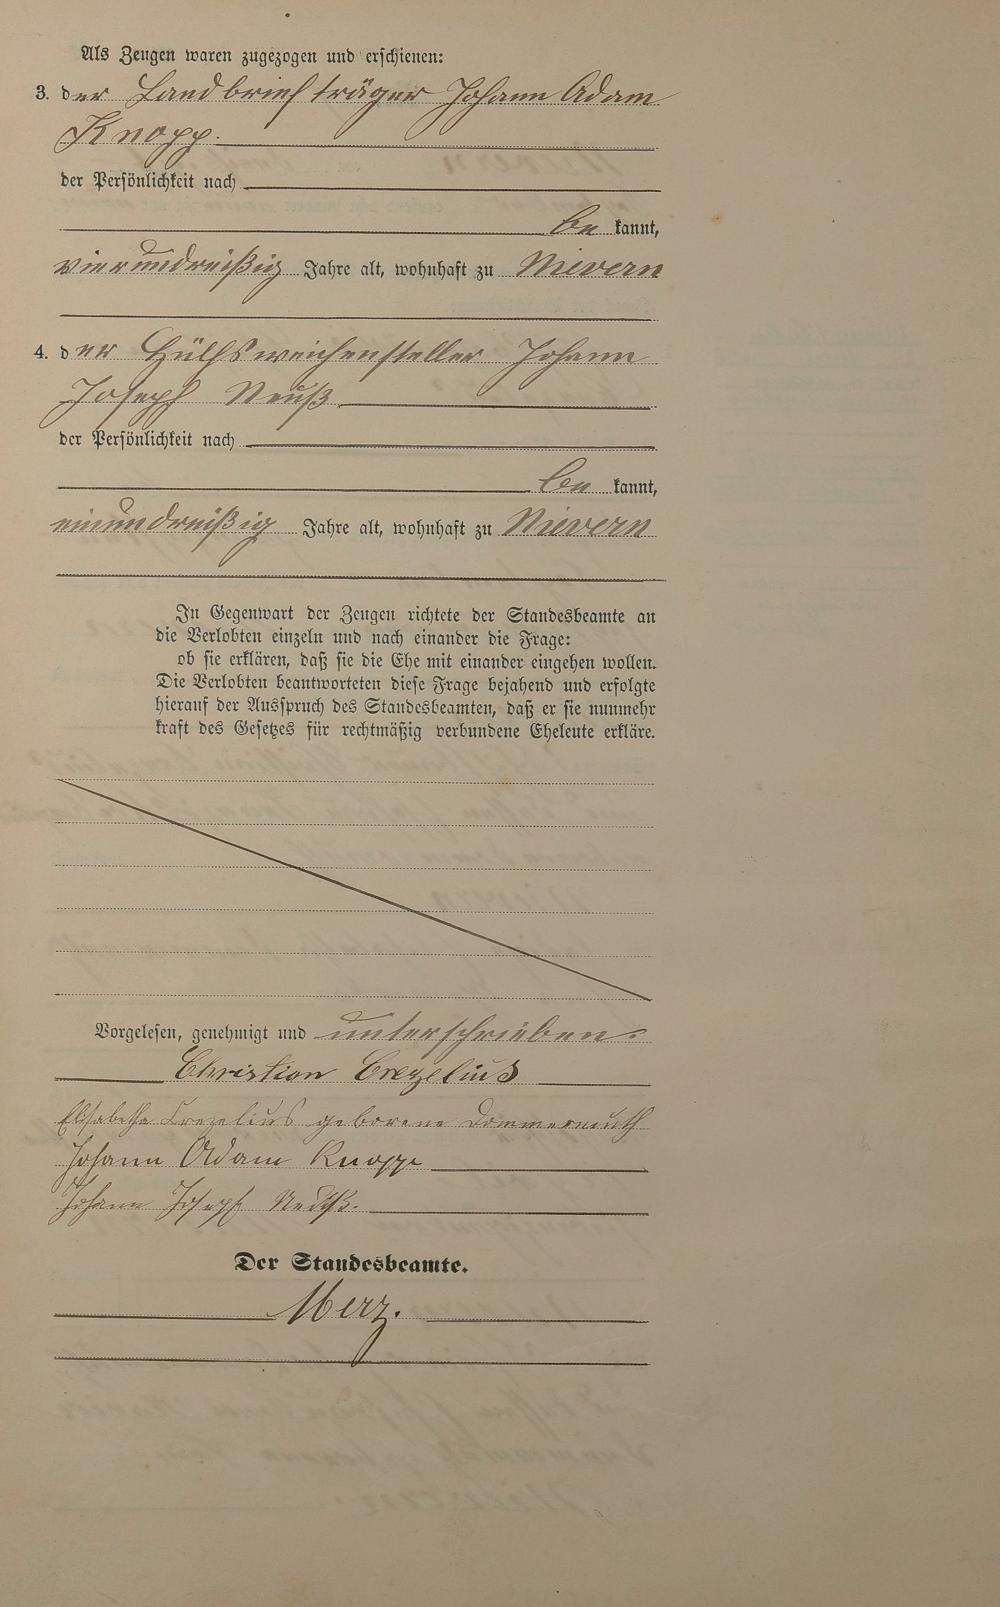 Als Zeugen waren zugezogen und erschienen:
3. der Landbriefträger Johann Adam
Knopp.
der Persönlichkeit nach
be kannt,
vierunddreißig Jahre alt, wohnhaft zu Nievern
4. der Hülfsweichensteller Johann
Joseph Neuß
der Persönlichkeit nach
be kannt,
einunddreißig Jahre alt, wohnhaft zu Nievern
In Gegenwart der Zeugen richtete der Standesbeamte an
die Verlobten einzeln und nach einander die Frage:
ob sie erklären, daß sie die Ehe mit einander eingehen wollen.
Die Verlobten beantworteten diese Frage bejahend und erfolgte
hierauf der Ausspruch des Standesbeamten, daß er sie nunmehr
kraft des Gesetzes für rechtmäßig verbundene Eheleute erkläre.
Vorgelesen, genehmigt und unterschrieben.
Christian Crezelius
Elisabetha Crezelius geborene Dommermuth
Johann Adam Knopp
Johann Joseph
Der Standesbeamte.
Merz.